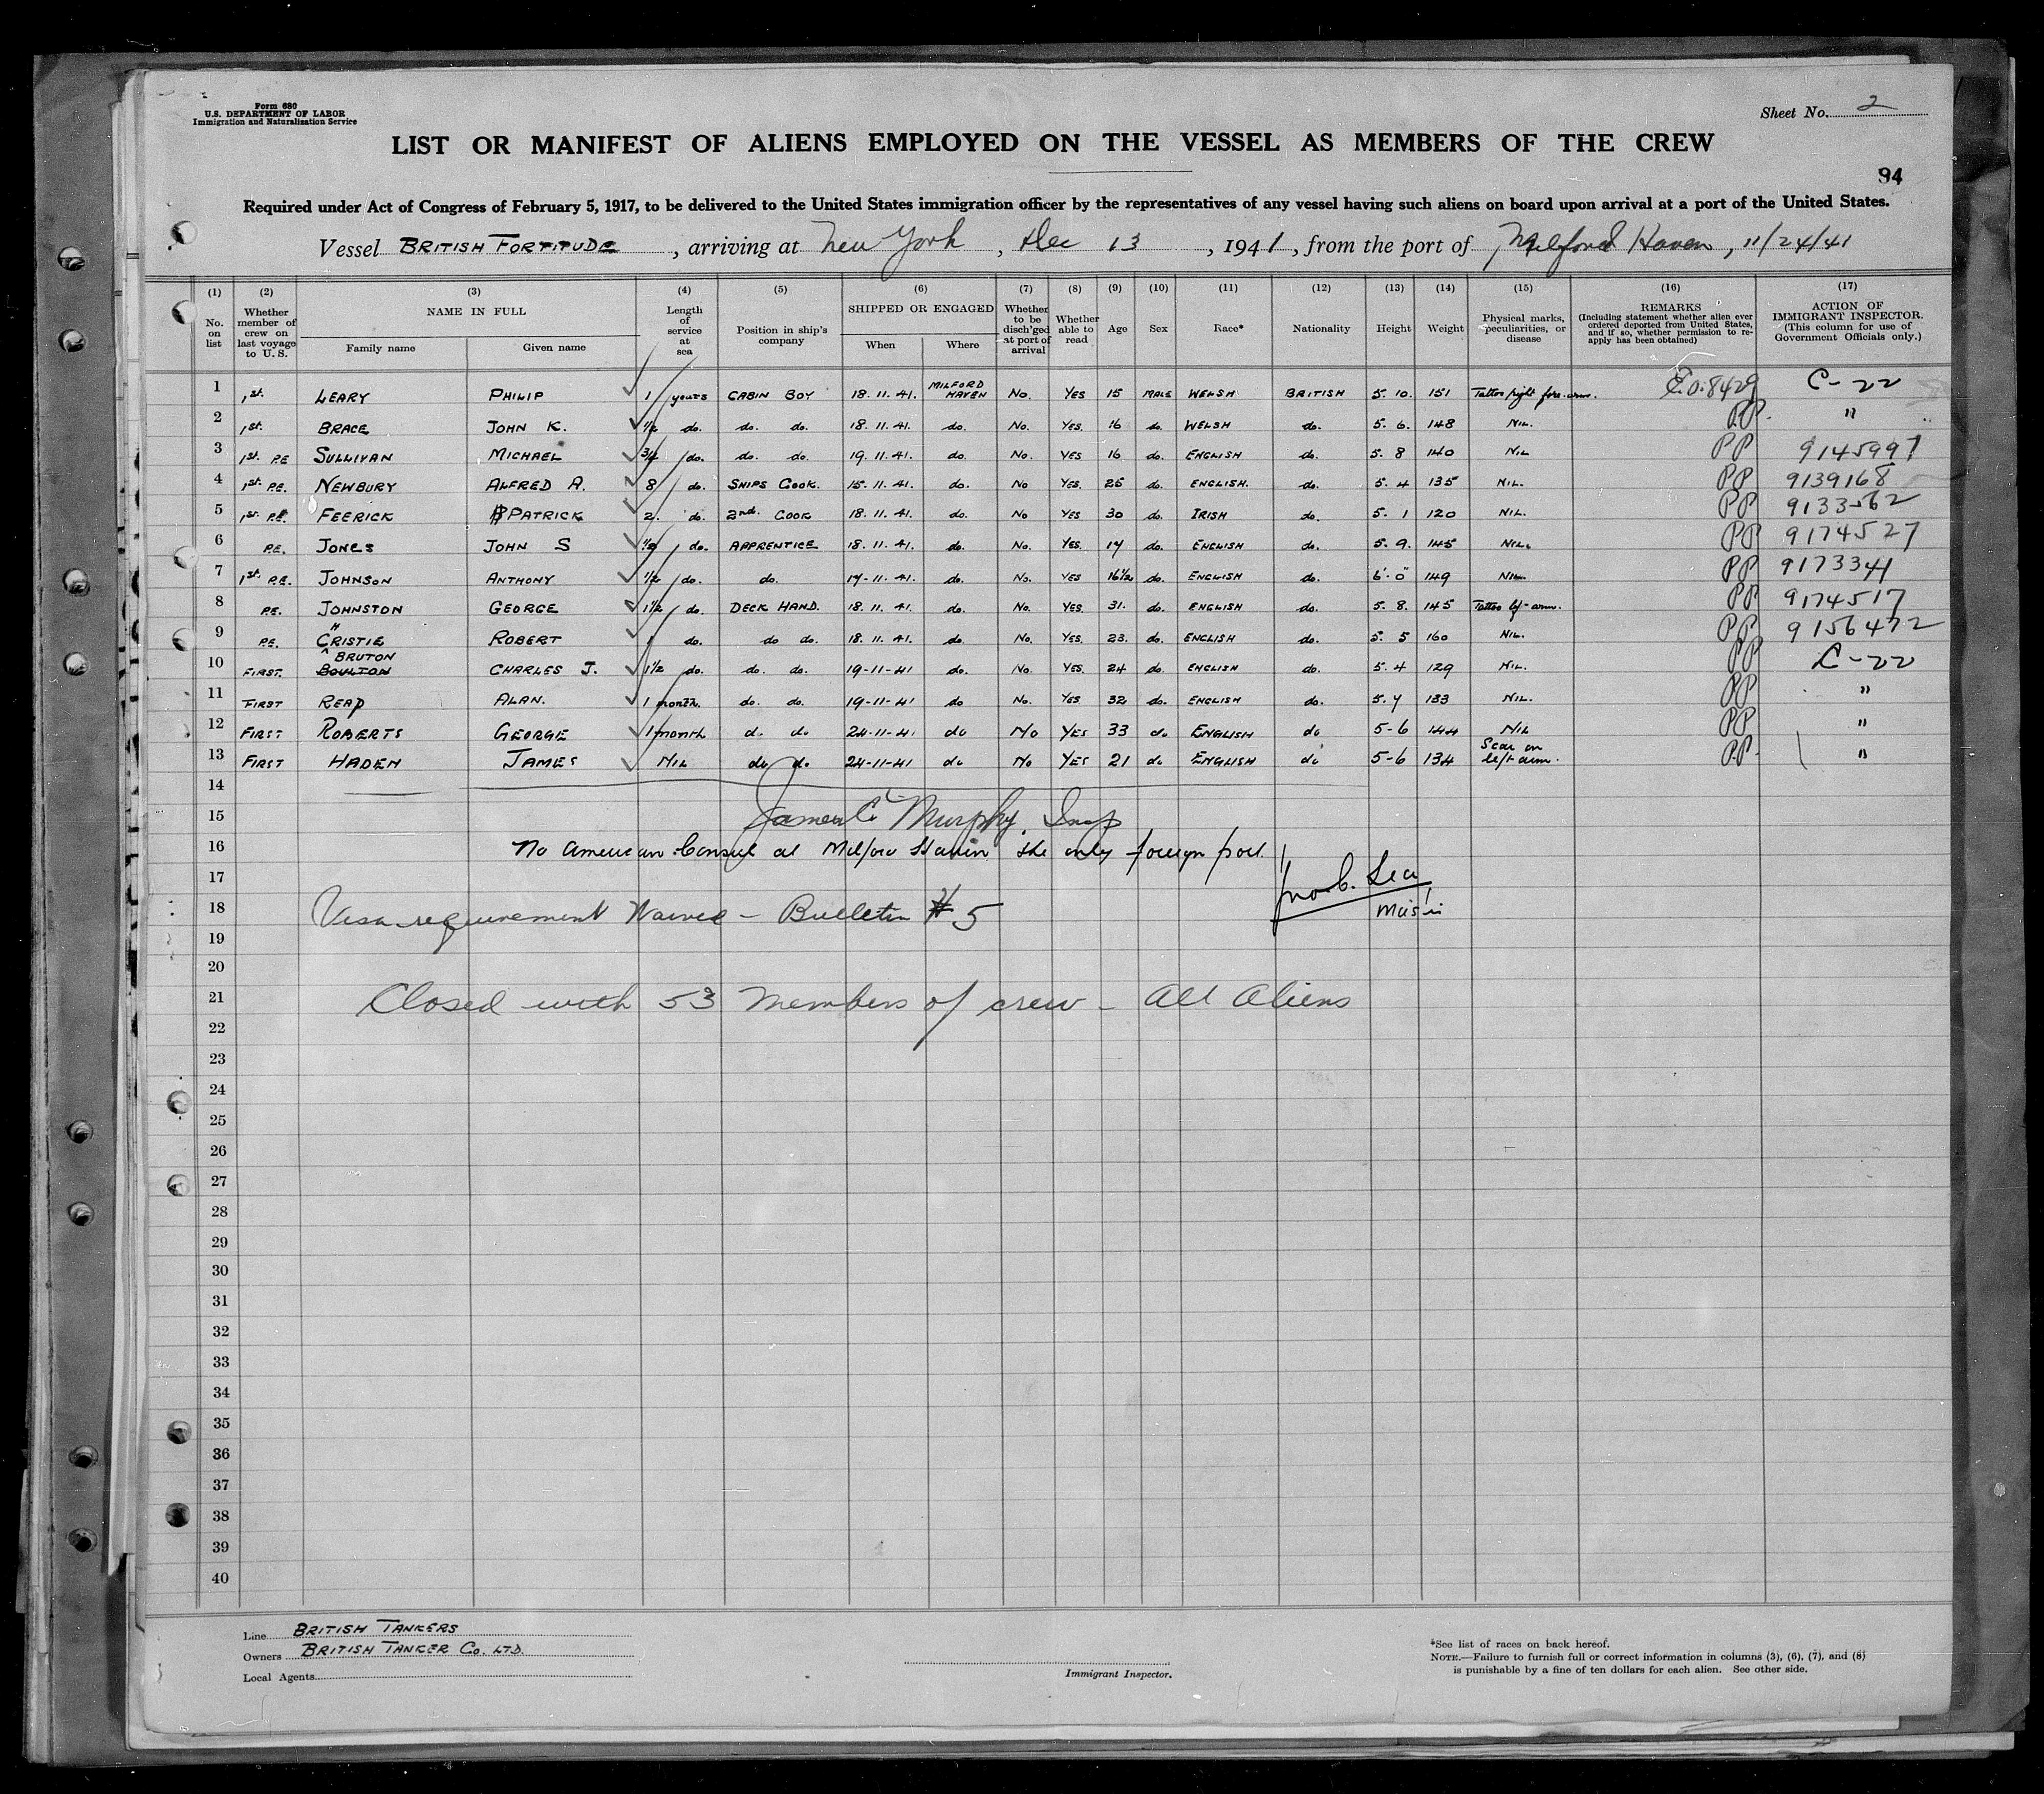 Form 680
U.S. DEPARTMENT OF LABOR
Immigration and Naturalization Service
Sheet No. 2
LIST OR MANIFEST OF ALIENS EMPLOYED ON THE VESSEL AS MEMBERS OF THE CREW
94
Required under Act of Congress of February 5, 1917, to be delivered to the United States immigration officer by the representatives of any vessel having such aliens on board upon arrival at a port of the United States.
Vessel BRITISH FORTITUDE, arriving at New York, Dec 13, 1941, from the port of Milford Haven, 11/24/41
(1) No. on list
(2) Whether member of crew on last voyage to U. S.
(3) NAME IN FULL Family name Given name
(4) Length of service at sea
(5) Position in ship's company
(6) SHIPPED OR ENGAGED When Where
(7) Whether to be disch'ged at port of arrival
(8) Whether able to read
(9) Age
(10) Sex
(11) Race*
(12) Nationality
(13) Height
(14) Weight
(15) Physical marks, peculiarities, or disease
(16) REMARKS (Including statement whether alien ever ordered deported from United States, and if so, whether permission to re-apply has been obtained)
(17) ACTION OF IMMIGRANT INSPECTOR. (This column for use of Government Officials only.)
1 1st. LEARY PHILIP 1 years CABIN BOY 18.11.41. MILFORD HAVEN No. YES 15 MALE WELSH BRITISH 5.10. 151 Tattoo right fore-arm. E.O.8429 C-22
2 1st. BRACE JOHN K. 1/2 do. do. do. 18.11.41. do. No. YES. 16 do. WELSH do. 5.6. 148 NIL. PP. "
3 1st. P.E SULLIVAN MICHAEL 3/4 do. do. do. 19.11.41. do. No. YES 16 do. ENGLISH do. 5.8 140 NIL PP 9145997
4 1st. P.E. NEWBURY ALFRED A. 8 do. SHIPS COOK. 15.11.41. do. No YES. 25 do. ENGLISH. do. 5.4 135 NIL. PP 9139168
5 1st. P.E. FEERICK PATRICK 2. do. 2nd. COOK 18.11.41. do. No YES 30 do. IRISH do. 5.1 120 NIL. PP 9133562
6 P.E. JONES JOHN S 1/2 do. APPRENTICE 18.11.41. do. No. YES. 17 do. ENGLISH do. 5.9. 145 NIL. PP 9174527
7 1st. P.E. JOHNSON ANTHONY 1/2 do. do. 17-11.41. do. No. YES 16 1/2 do. ENGLISH do. 6'.0" 149 NIL. PP 9173341
8 P.E. JOHNSTON GEORGE 1 1/2 do. DECK HAND. 18.11.41. do. No. YES. 31. do. ENGLISH do. 5.8. 145 Tattoo lf-arm. PP 9174517
9 P.E. CHRISTIE ROBERT 1 do. do do. 18.11.41. do. No. YES. 23. do. ENGLISH do. 5.5 160 NIL. PP 9156472
10 FIRST. BOULTON BRUTON CHARLES J. 1 1/2 do. do. do. 19-11-41 do. No. YES. 24 do. ENGLISH do. 5.4 129 NIL. PP C-22
11 FIRST READ ALAN. 1 month. do. do. 19-11-41 do No. YES 32 do. ENGLISH do. 5.7 133 NIL. PP "
12 FIRST ROBERTS GEORGE 1 month do do 24-11-41 do No YES 33 do ENGLISH do 5-6 144 NIL PP "
13 FIRST HADEN JAMES NIL do do 24-11-41 do No YES 21 do ENGLISH do 5-6 134 Scar on left arm. P.P. "
14
15 James C. Murphy. Insp
16 No American Consul at Milford Haven the only foreign port.
17
18 Visa requirement Waived - Bulletin #5
Master
19
20
21 Closed with 53 members of crew - All Aliens
22
23
24
25
26
27
28
29
30
31
32
33
34
35
36
37
38
39
40
Line BRITISH TANKERS
Owners BRITISH TANKER CO. LTD.
Local Agents
Immigrant Inspector.
*See list of races on back hereof.
NOTE.—Failure to furnish full or correct information in columns (3), (6), (7), and (8)
is punishable by a fine of ten dollars for each alien. See other side.